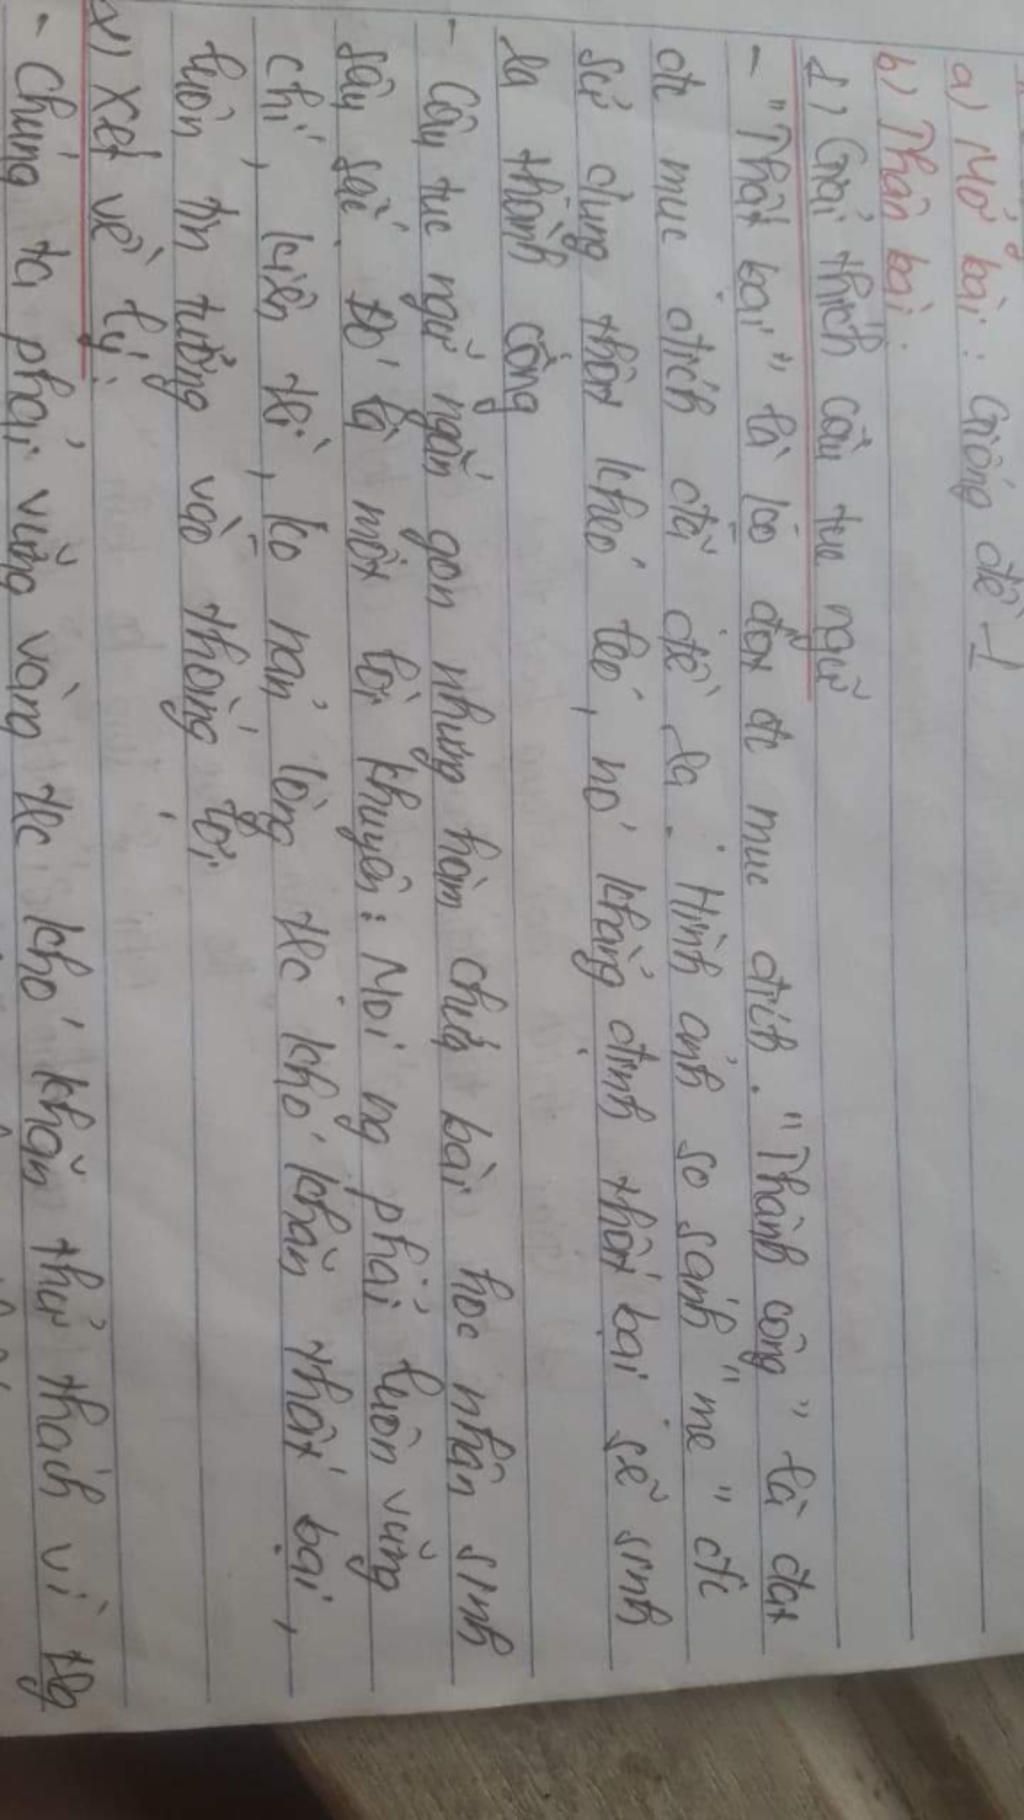 a) Mở bài: Giống đề 1
b) Thân bài:
1) Giải thích câu tục ngữ
- "Thất bại" là ko đạt đc mục đích. "Thành công" là đạt
đc mục đích đã đề ra. Hình ảnh so sánh "mẹ" đc
sử dụng thật khéo léo, nó khẳng định thất bại sẽ sinh
ra thành công
- Câu tục ngữ ngắn gọn nhưng hàm chứa bài học nhân sinh
sâu sắc. Đó là một lời khuyên: Mọi ng phải luôn vững
chí, kiên trì, ko nản lòng trc khó khăn thất bại,
luôn tin tưởng vào thắng lợi
) Xét về lý:
- Chúng ta phải vững vàng trc khó khăn thử thách vì trg